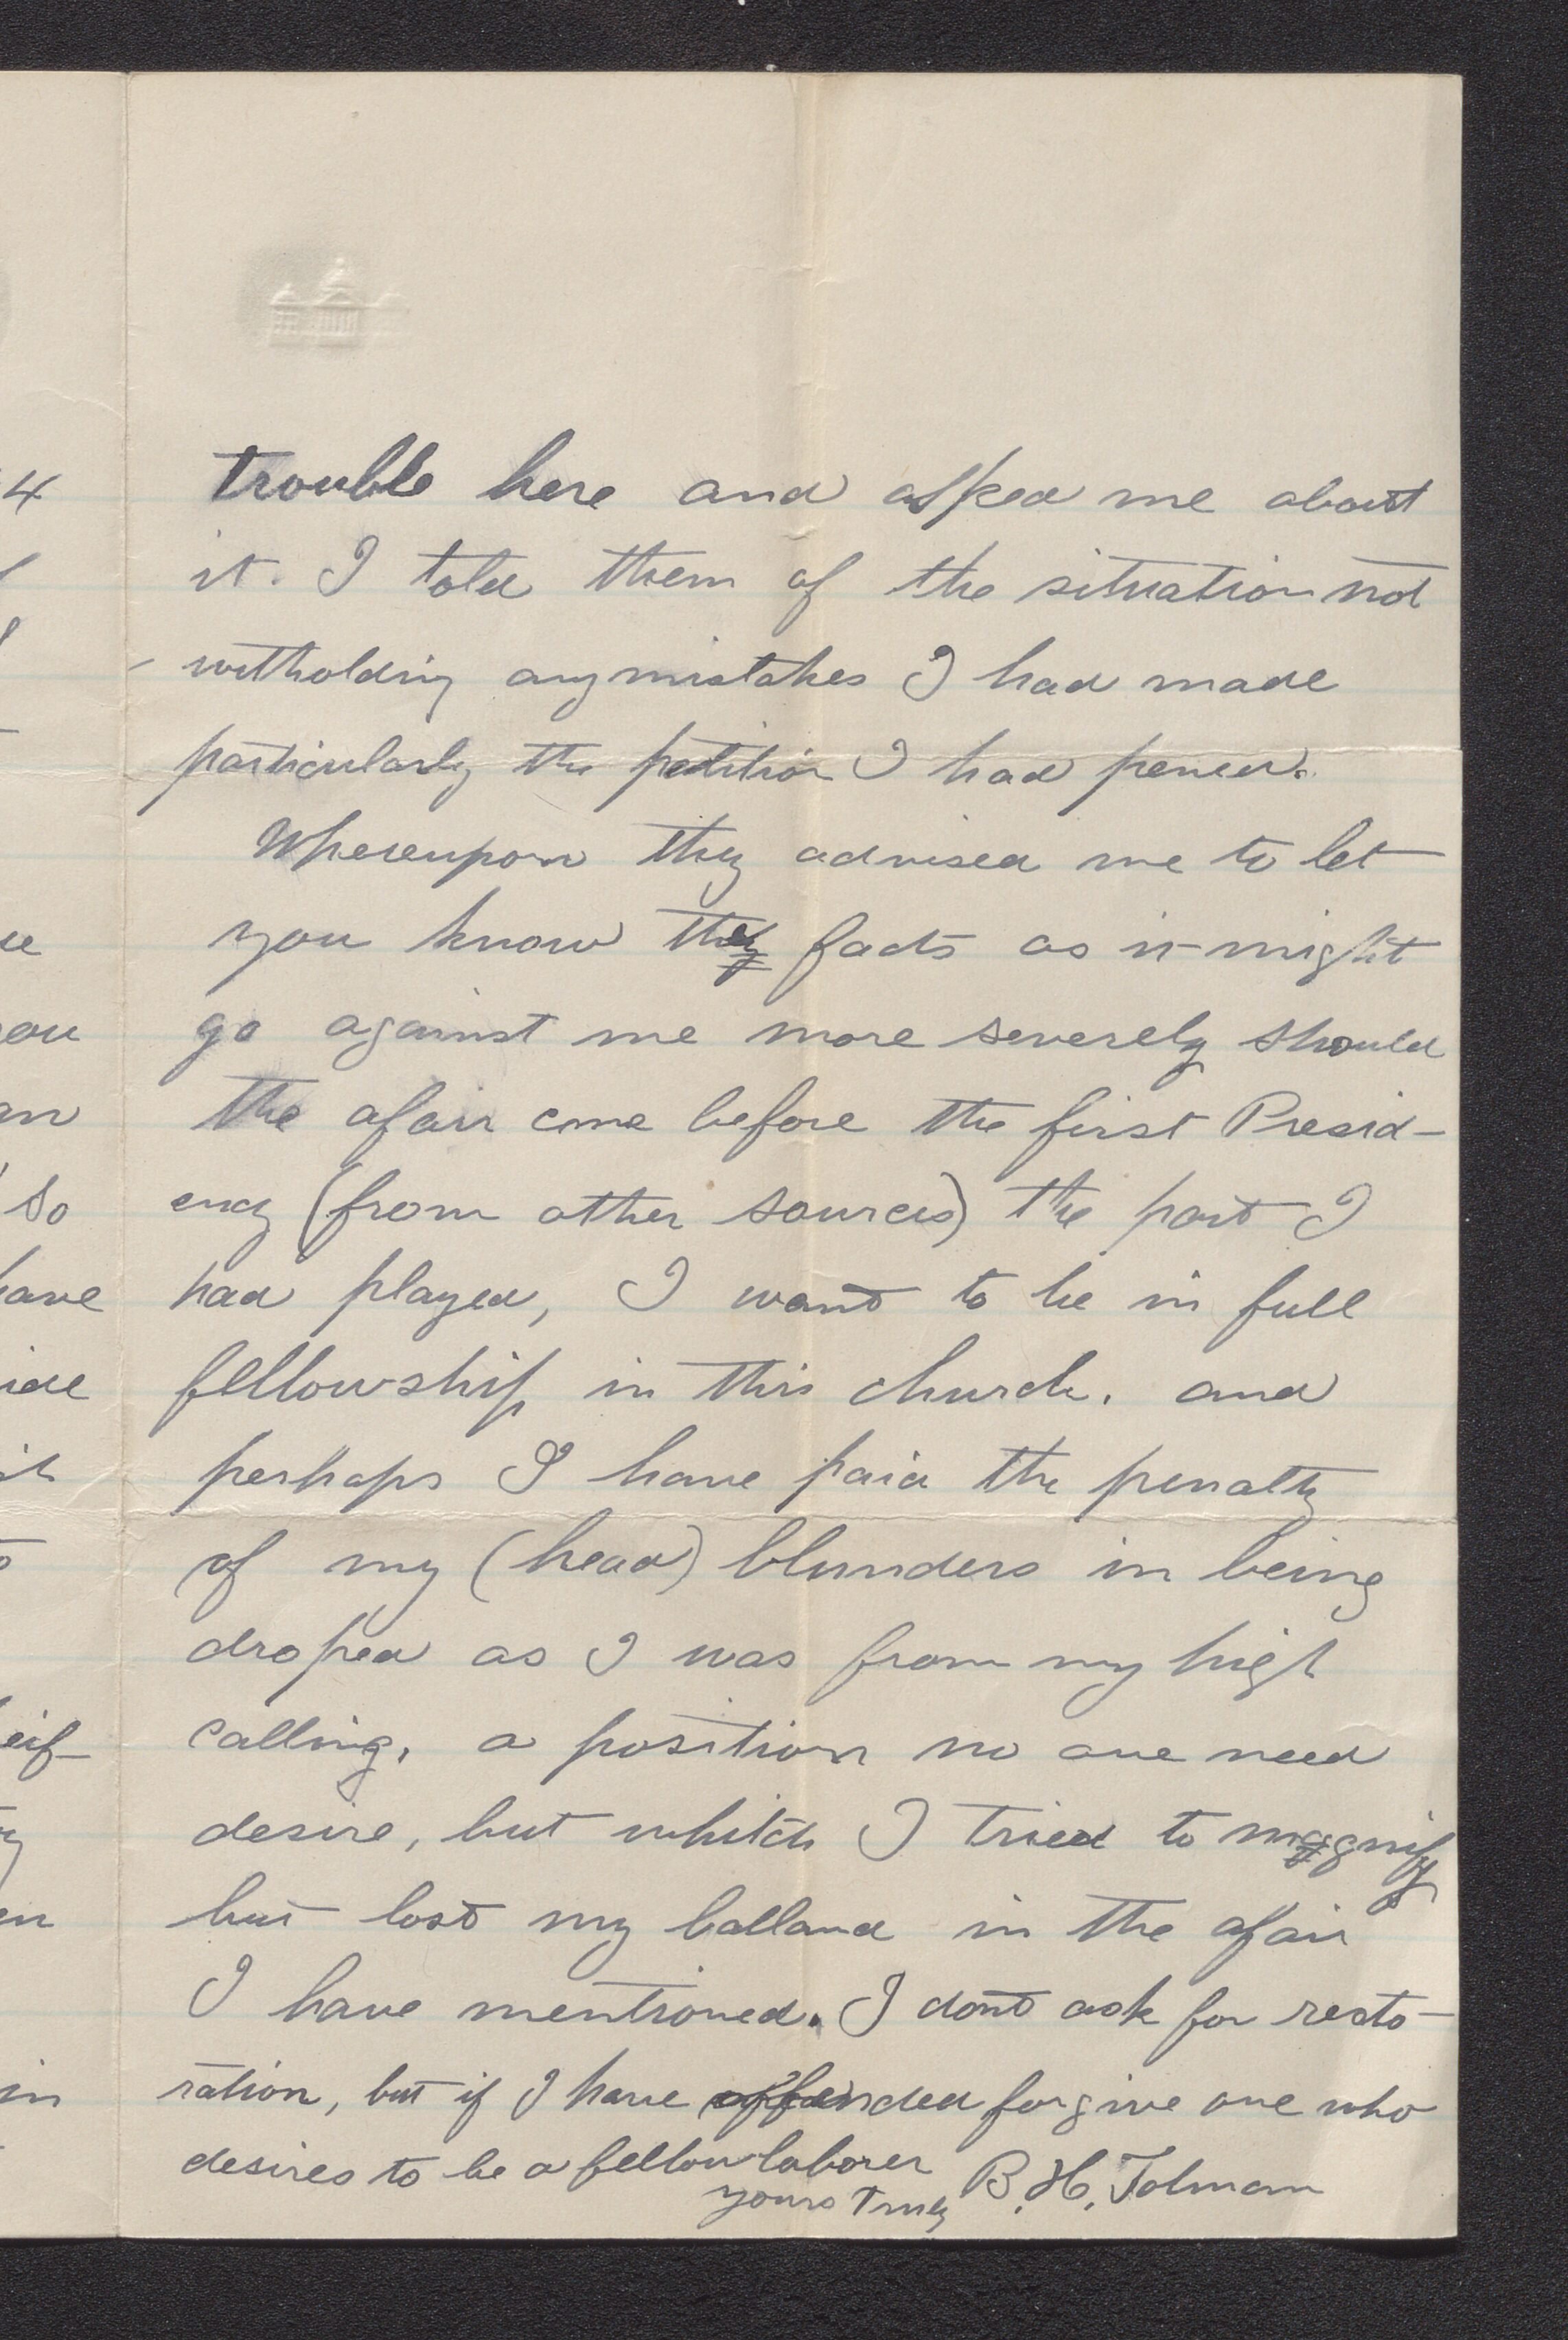 trouble here and asked me about
it. I told them of the situation not
witholding any mistakes I had made
particularly the petition I had pened.
Whereupon they advised me to let
you know the facts as it might
go against me more severely should
the afair come before the first Presid-
ency (from other sources) the part I
had played, I want to be in full
fellowship in this church. and
perhaps I have paid the penalty
of my (head) blunders in being
droped as I was from my high
calling, a position no one need
desire, but whitch I tried to magnify
but lost my balland in the afair
I have mentioned. I dont ask for resto-
ration, but if I have offended forgive one who
desires to be a fellow laborer
yours truly B. H. Tolman
4
ou
an
so
have
ide
eif-
en
in